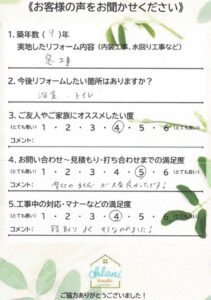 《お客様の声をお聞かせください》
1. 築年数( 9 )年
実地したリフォーム内容(内装工事、水回り工事など)
窓工事
2. 今後リフォームしたい箇所はありますか?
浴室、トイレ
3. ご友人やご家族にオススメしたい度
(とても悪い) 1・2・3・④・5・6 (とても良い)
コメント:
4. お問い合わせ〜見積もり・打ち合わせまでの満足度
(とても悪い) 1・2・3・4・⑤・6 (とても良い)
コメント:
5. 工事中の対応・マナーなどの満足度
(とても悪い) 1・2・3・④・5・6 (とても良い)
コメント: 段取りよく
ohlani
ご協力ありがとうございました!